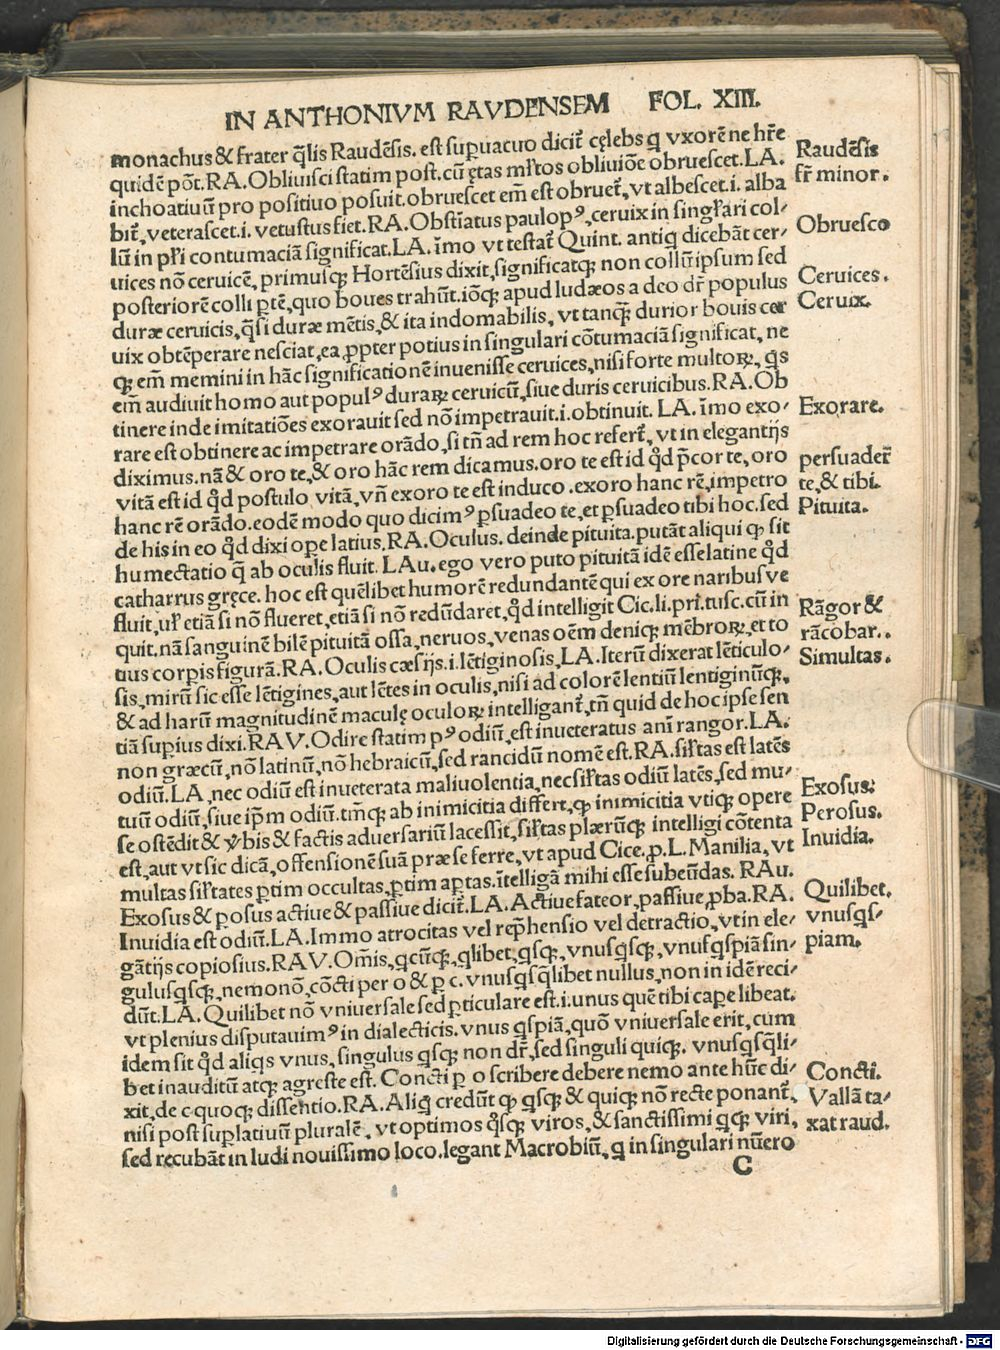 IN ANTHONIVM RAVDENSEM FOL. XIII.
monachus & frater q̃lis Raudẽsis. est supuacuo dicit̃ cęlebs q vxorẽ ne hr̃e
quidẽ põt. RA. Obliuisci statim post. cũ ętas ml̃tos obliuiõe obruescet. LA.
inchoatiuũ pro positiuo posuit. obruescet em̃ est obruet̃, vt albescet .i. alba
bit̃, veterascet .i. vetustus fiet. RA. Obstĩatus paulopꝰ, ceruix in singl̃ari col/
lũ in pl̃i contumaciã significat. LA. ĩmo vt testat̃ Quint. antiq dicebãt cer/
uices nõ ceruicẽ, primusꝗ; Hortẽsius dixit, significatꝗ; non collũ ipsum sed
posteriorẽ colli ptẽ, quo boues trahũt. iõꝗ; apud Iudæos a deo dr̃ populus
duræ ceruicis, q̃si duræ mẽtis, & ita indomabilis, vt tanꝗ; durior bouis cer
uix obtẽperare nesciat, ea ꝓpter potius in singulari cõtumaciã significat, ne
ꝗ; em̃ memini in hãc significationẽ inuenisse ceruices, nisi forte multoꝝ, q̃s
em̃ audiuit homo aut populꝰ duraꝝ ceruicũ, siue duris ceruicibus. RA. Ob
tinere inde imitatiões exorauit sed nõ impetrauit .i. obtinuit. LA. ĩmo exo/
rare est obtinere ac impetrare orãdo, si tñ ad rem hoc refert̃, vt in elegantijs
diximus. nã & oro te, & oro hãc rem dicamus. oro te est id q̃d p̃cor te, oro
vitã est id q̃d postulo vitã, vñ exoro te est induco. exoro hanc rẽ, impetro
hanc rẽ orãdo. eodẽ modo quo dicimꝰ ꝑsuadeo te, et ꝑsuadeo tibi hoc. sed
de his in eo q̃d dixi ope latius. RA. Oculus. deinde pituita. putãt aliqui ꝙ sit
humectatio q̃ ab oculis fluit. LAu. ego vero puto pituitã idẽ esse latine q̃d
catharrus gręce. hoc est quẽlibet humorẽ redundantẽ qui ex ore naribusve
fluit, ul̃ etiã si nõ flueret, etiã si nõ redũdaret, q̃d intelligit Cic. li. pri. tusc. cũ in
quit. nã sanguinẽ bilẽ pituitã ossa, neruos, venas oẽm deniꝗ; mẽbroꝝ, et to
tius corpis figurã. RA. Oculis cæsijs .i. lẽtiginosis, LA. Iterũ dixerat lẽticulo/
sis, mirũ sic esse lẽtigines, aut lẽtes in oculis, nisi ad colorẽ lentiũ lentiginũꝗ;,
& ad harũ magnitudinẽ maculę oculoꝝ intelligant̃, tñ quid de hoc ipse sen
tiã supius dixi. RAV. Odire statim pꝰ odiũ, est inueteratus ani rangor. LA.
non græcũ, nõ latinũ, nõ hebraicũ, sed rancidũ nomẽ est. RA. sil̃tas est latẽs
odiũ. LA, nec odiũ est inueterata maliuolentia, nec sil̃tas odiũ latẽs, sed mu/
tuũ odiũ, siue ip̃m odiũ. tm̃ꝗ; ab inimicitia differt, ꝙ inimicitia vtiꝗ; opere
se ostẽdit & ṽbis & factis aduersariũ lacessit, sil̃tas plærũꝗ; intelligi cõtenta
est, aut vt sic dicã, offensionẽ suã præ se ferre, vt apud Cice. ꝓ. L. Manilia, vt
multas sil̃tates ꝑtim occultas, ꝑtim aꝑtas. ĩtelligã mihi esse subeũdas. RAu.
Exosus & ꝑosus actiue & passiue dicit̃. LA. Actiue fateor, passiue ꝓba. RA.
Inuidia est odiũ. LA. Immo atrocitas vel rep̃hensio vel detractio, vt in ele/
gãtijs copiosius. RAV. Om̃is, qcũꝗ;, qlibet, qsꝗ;, vnusqsꝗ;, vnusqspiã sin/
gulusqsꝗ;, nemo nõ, cõcti per o & ꝑ c. vnusqsq̃libet nullus, non in idẽ reci/
dũt. LA. Quilibet nõ vniuersale sed ꝑticulare est .i. unus quẽ tibi cape libeat.
vt plenius disputauimꝰ in dialecticis. vnus qspiã, quõ vniuersale erit, cum
idem sit q̃d aliqs vnus, singulus qsꝗ; non dr̃, sed singuli quiꝗ;. vnusqsq̃li/
bet inauditũ atꝗ; agreste est. Concti ꝑ o scribere debere nemo ante hũc di/
xit, de c quoꝗ; dissentio. RA. Aliq credũt ꝙ qsꝗ; & quiꝗ; nõ recte ponant̃,
nisi post suplatiuũ pluralẽ, vt optimos q̃sꝗ; viros, & sanctissimi qꝗ; viri,
sed recubãt in ludi nouissimo loco. legant Macrobiũ, q in singulari nũero
C
Raudẽsis
fr̃ minor.
Obruesco
Ceruices.
Ceruix.
Exorare.
persuader̃
te, & tibi.
Pituita.
Rãgor &
rãcobar..
Simultas.
Exosus.
Perosus.
Inuidia.
Quilibet.
vnusqs/
piam.
Concti.
Vallã ta/
xat raud.
Digitalisierung gefördert durch die Deutsche Forschungsgemeinschaft - DFG